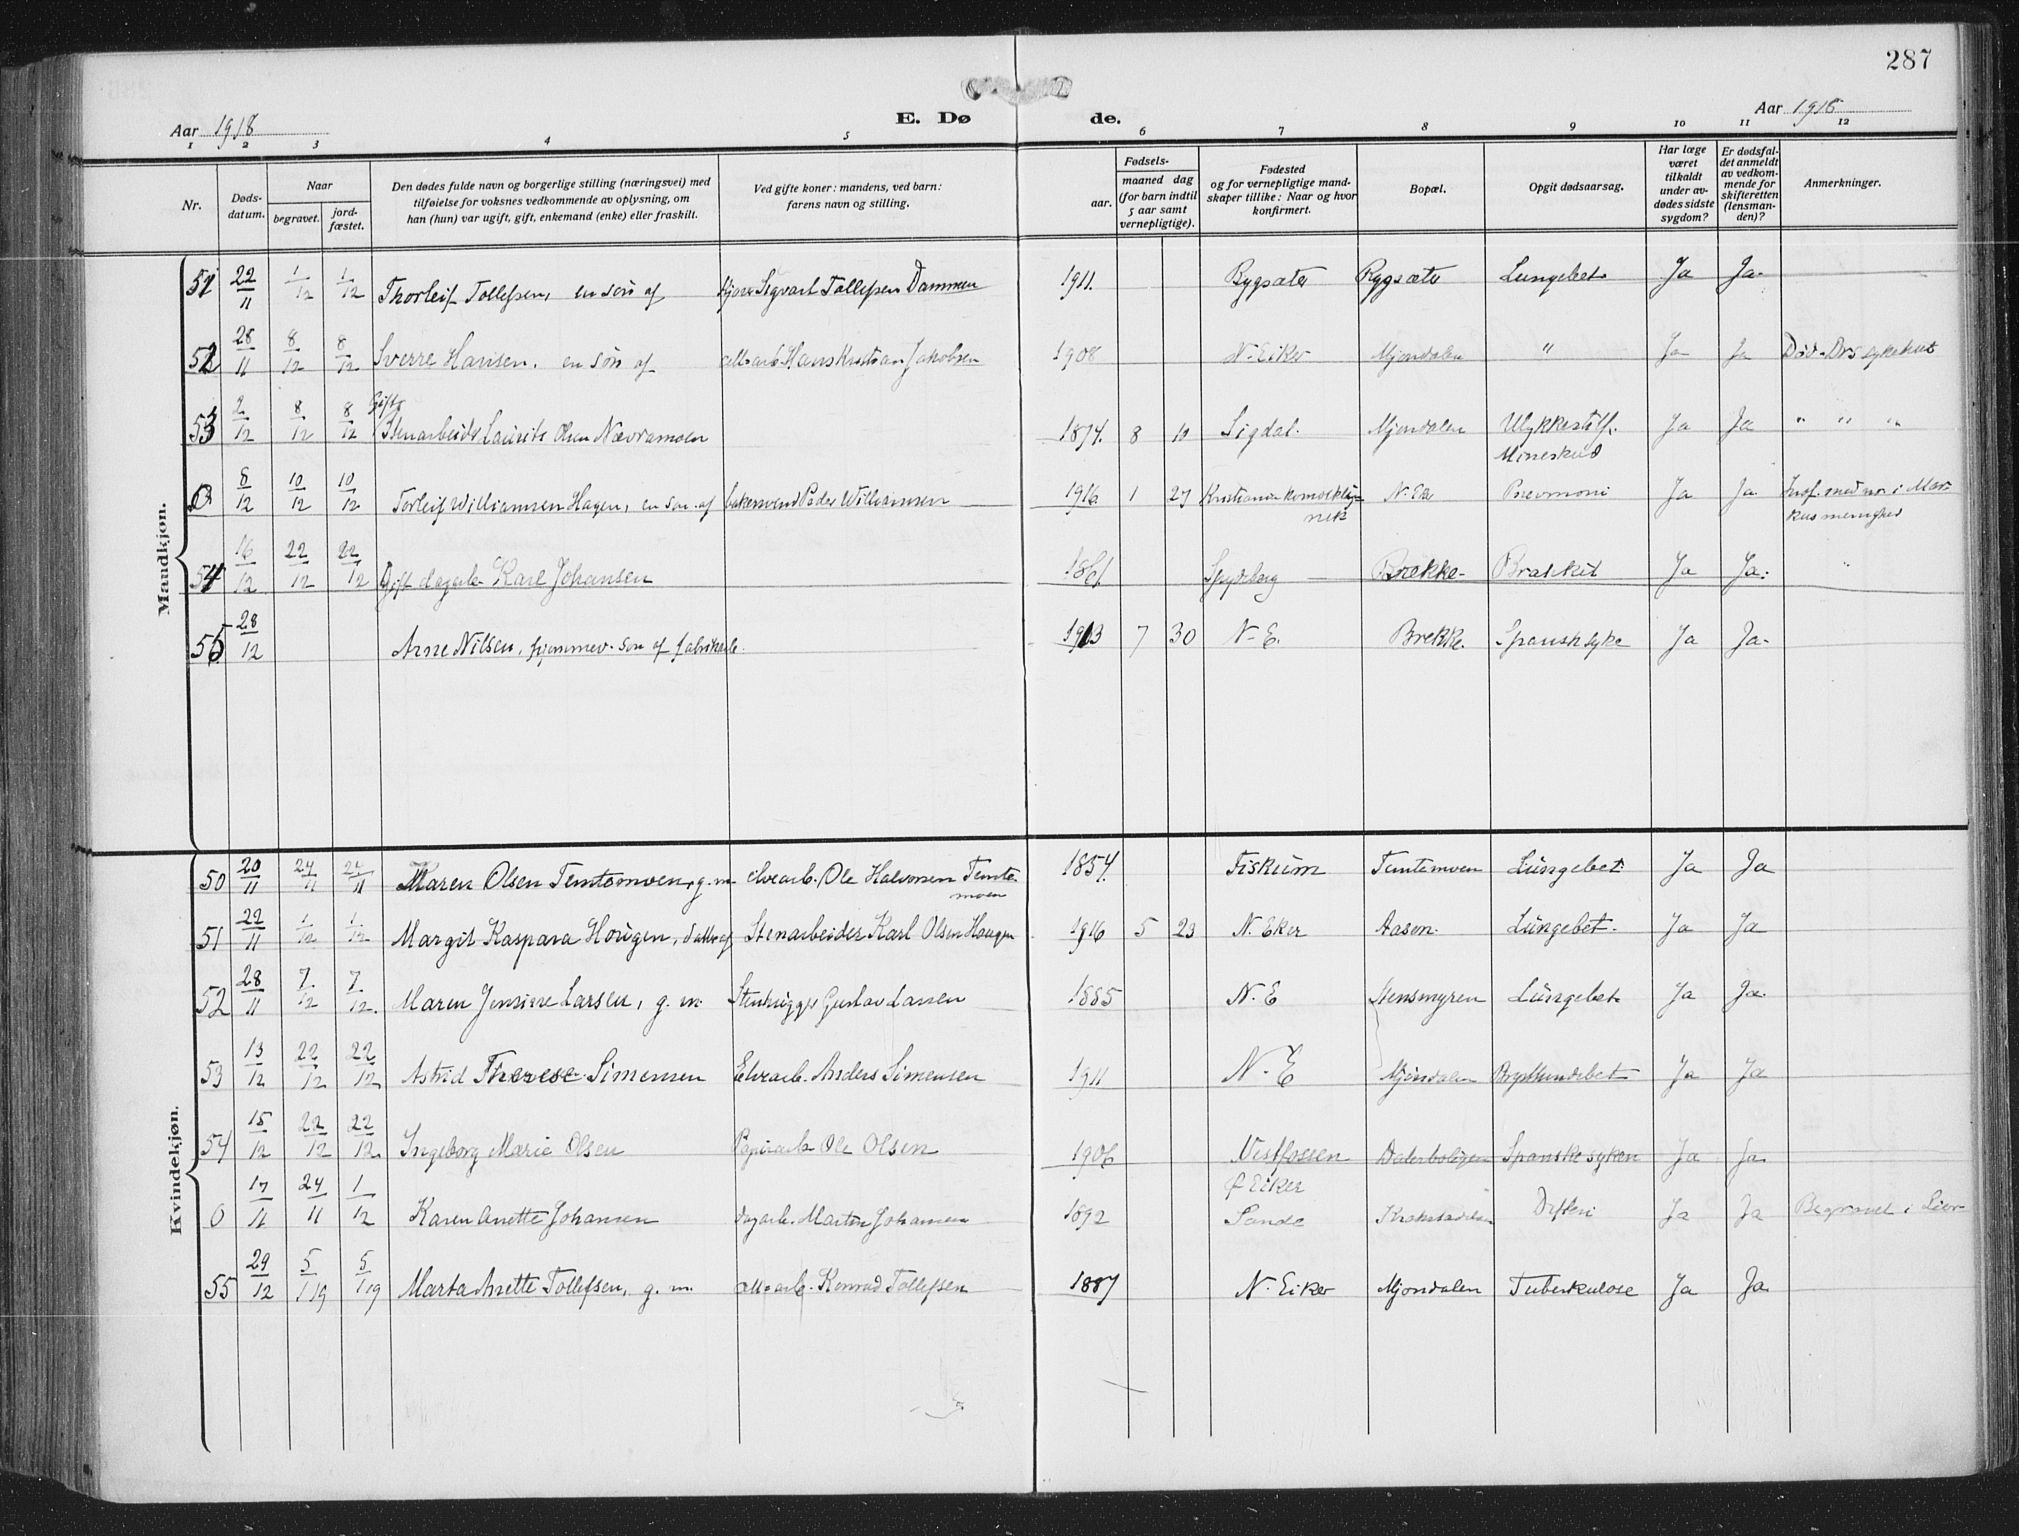 287
Aar 1918
E. Dø
de.
Aar 1918
1 2 3 4 5 6 7 8 9 10 11 12
Nr.
Døds-
datum.
Naar
begravet.
jord-
fæstet.
Den dødes fulde navn og borgerlige stilling (næringsvei) med
tilføielse for voksnes vedkommende av oplysning, om
han (hun) var ugift, gift, enkemand (enke) eller fraskilt.
Ved gifte koner: mandens, ved barn:
farens navn og stilling.
Fødsels-
aar.
maaned dag
(for barn indtil
5 aar samt
vernepligtige).
Fødested
og for vernepligtige mand-
skaper tillike: Naar og hvor
konfirmert.
Bopæl.
Opgit dødsaarsag.
Har læge
været
tilkaldt
under av-
dødes sidste
sygdom?
Er dødsfal-
det anmeldt
av vedkom-
mende for
skifteretten
(lensman-
den)?
Anmerkninger.
Mandkjøn.
51 22/11 1/12 1/12 Thorleif Tollefsen, en søn af Sigvart Tollefsen Dammen 1911. Rygsæter Rygsæter Lungebet. Ja Ja
52 28/11 8/12 8/12 Sverre Hansen, en søn af Hans Kristian Jakobsen 1908 N. Eiker Mjøndalen " Ja Ja Død Drs sykehus
Gift
53 2/12 8/12 8/12 Stenarbeider Laurits Olsen Nævramoen 1874. 8 10 Sigdal. Mjøndalen Ulykkestilf. Ja Ja " " "
Mineskud
0 8/12 10/12 10/12 Torleif Williamsen Hagen, en søn af bakersvend Peder Williamsen 1916 1 27 Kristiania N. Ek Pnevmoni Ja Ja Indf. med nr. i Mar-
kus menighed
54 16/12 22/12 22/12 Gift dagarb. Karl Johansen 1861. Spydeberg Brekke Ja Ja.
55 28/12 Arne Nilsen, hjemmev. søn af fabrikarb. 1913 7 30 N. E. Brekke. Spansk syke Ja Ja.
Kvindekjøn.
50 20/11 24/11 24/11 Maren Olsen Temtemoen, g. m. elvearb. Ole Halvorsen Temte- 1857. Fiskum Temtemoen Lungebet. Ja Ja
moen
51 22/11 1/12 1/12 Margit Kaspara Hougen, datter af Stenarbeider Karl Olsen Hougen 1916 5 23 N. Eker Aasen. Lungebet. Ja Ja
52 28/11 7/12 7/12. Maren Jensine Larsen, g. m. Stenhugger Gustav Larsen 1885 N. E Stensmyren Lungebet. Ja Ja.
53 13/12 22/12 22/12 Astrid Therese Simensen Elvearb. Anders Simensen 1911 N. E Mjøndalen Brysthindebet Ja Ja
54 15/12 22/12 22/12. Ingeborg Marie Olsen Papirarb Ole Olsen 1906 Vestfossen Spanske syken Ja Ja.
Ø Eiker
0 17/11 24/11 1/12 Karen Anette Johansen dagarb. Martin Johansen 1892 Sande Krokstadelva Difteri Ja Ja Begravet i Lier
55 29/12 5/1 19 5/1 19 Marta Anette Tollefsen, g. m. Konrad Tollefsen 1887 N. Eiker Mjøndalen Tuberkulose Ja Ja